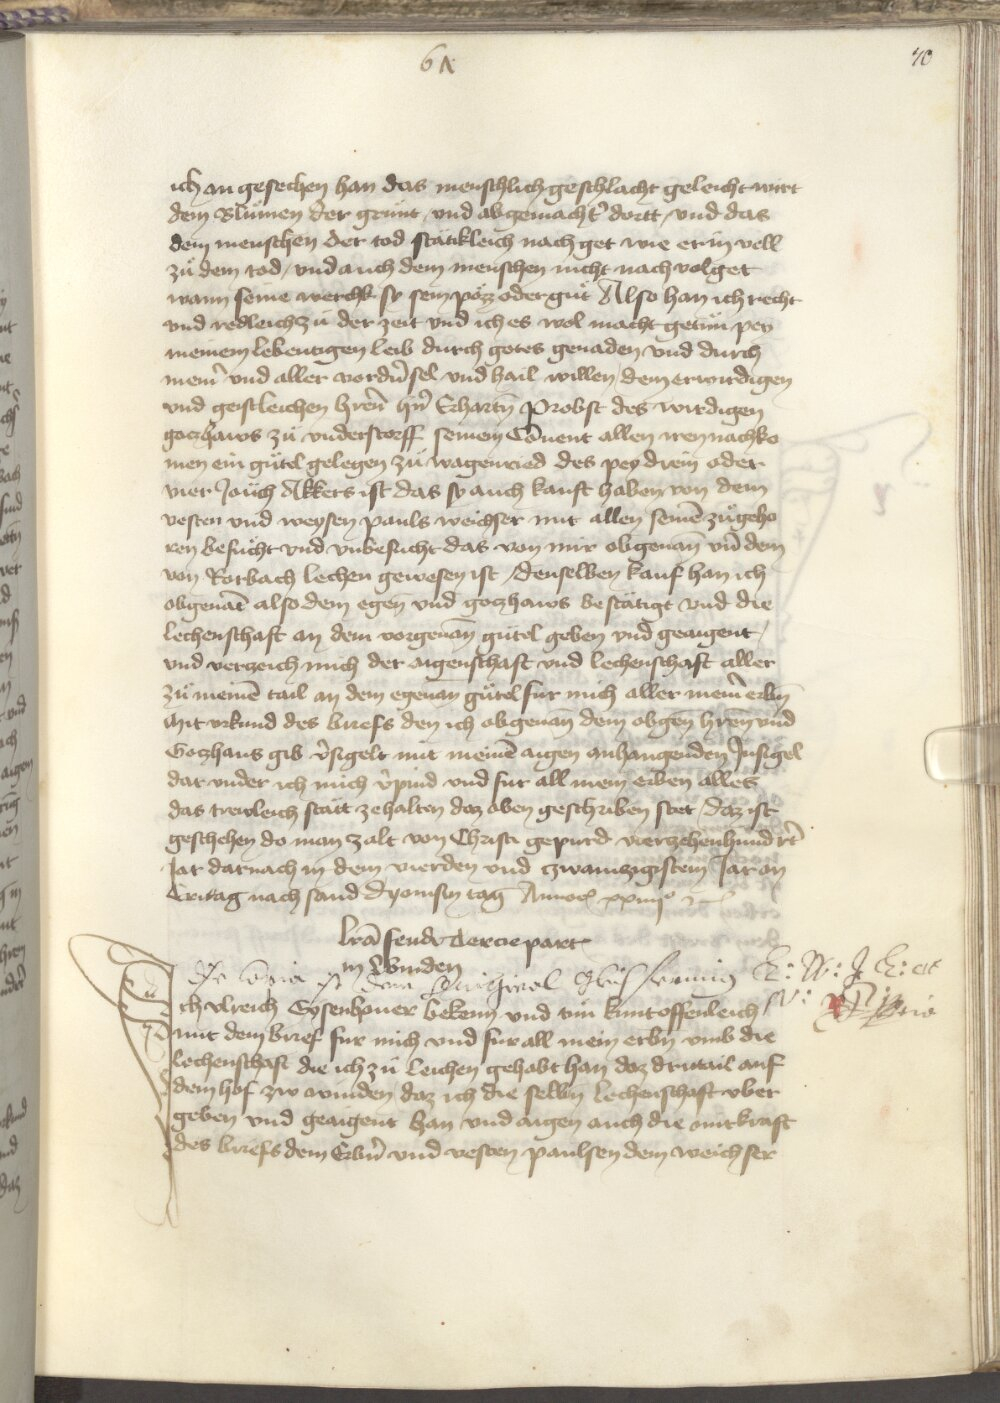 70
ich an gesechen han das menschlich geschlacht geleicht wirt
dem Blumen der grunt / und abgemacht dortt / und das
dem menschen der tod stätikleich nach get wie er in vell
zů dem tod / und auch dem menschen nicht nach volget
wann seine werchk sy sein pöz oder gůt Also han ich recht
und redleich zů der zeit und ich es wol macht getůn pey
meinem lebentigen leib durch gotes genaden und durch
mein͂ und aller vordn͂ sel und hail willen dem erwirdigen
und geistleichen hren͂ hn͂ Erhartn͂ Probst des wirdigen
goczhaws zů understorff seinem Co͂uent allen iren nachko
men ein gůtel gelegen zů wagenried des pey drein oder
vier Jauch Akkers ist das sy auch kauft haben von dem
vesten und weysen pauls weichser mit allen seine͂ zůgeho
ren besůcht und unbesucht das von mir obgenan͂ un͂ dem
von Rorbach lechen gewesen ist / denselben kauf han ich
obgenāt also dem egen͂ und goczhaws bestätigt und die
lechenschaft an dem vorgenan͂ gůtel geben und geaigent /
und verzeich mich der aigenschaft und lechenschaft aller
zů meine͂ tail an dem egenan͂ gůtel fur mich aller mein͂ erbn͂
Mit urkund des briefs den ich obgenan͂ dem obgen͂ hren͂ und
Goczhaus gib v͂sigelt mit meine͂ aigen anhangenden Insigel
dar under ich mich v͂pind und fur all mein erben alles
das trewleich stät ze halten daz oben geschriben stet / daz ist
geschehen do man zalt von Christi gepurd vierzehenhundrt͂
Jar darnach in dem vierden und czwainczigistem Jar an
Eritag nach sand Dyonisy tag Anno xxiiii
lrā sendt tercie part
in Winden
Ich Ulreich Eysenhouer bekenn und tůn kunt offenleich
mit dem brief fur mich und fur all mein erbn͂ umb die
lechenschaft die ich zů leichen gehabt han daz dritail auf
dem hof zw winden daz ich die selbn͂ lechenschaft uber
geben und geaigent han und aigen auch die mit kraft
des briefs dem Erbn͂ und vesten paulsen dem weichser